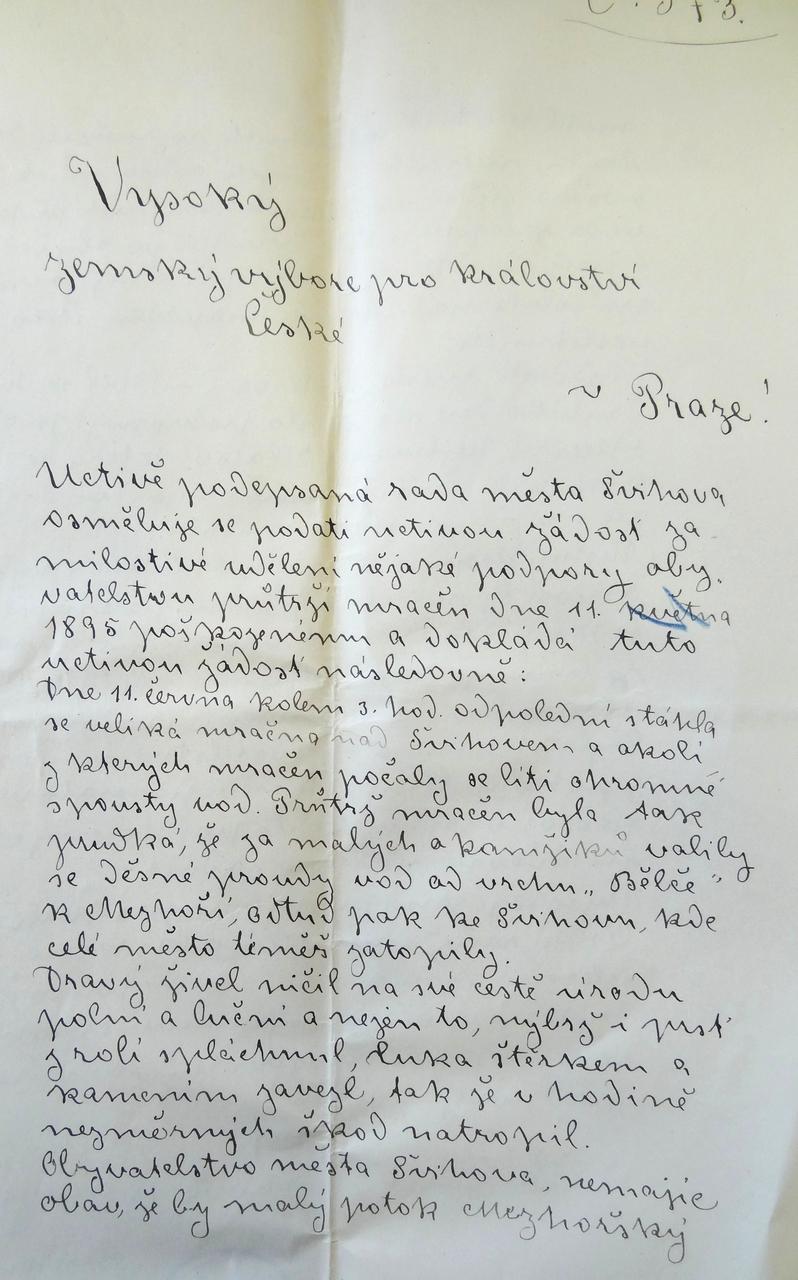 Vysoký
zemský výbore pro království
České
v Praze!
Uctivě podepsaná rada města Švihova
osměluje se podati uctivou žádost za
milostivé udělení nějaké podpory oby-
vatelstvu průtrží mračen dne 11. května
1895 poškozenému a dokládá tuto
uctivou žádost následovně:
Dne 11. června kolem 3. hod. odpolední stáhla
se veliká mračna nad Švihovem a okolí
z kterých mračen počaly se líti ohromné
spousty vod. Průtrž mračen byla tak
prudká, že za malých okamžiků valily
se děsné proudy vod od vrchu „Bělče"
k Mezhoří, odtud pak ke Švihovu, kde
celé město téměř zatopily.
Dravý živel ničil na své cestě úrodu
polní a luční a nejen to, nýbrž i prst
z rolí spláchnul, luka štěrkem a
kamením zavezl, tak že v hodině
nezměrných škod natropil.
Obyvatelstvo města Švihova, nemajíc
obav, že by malý potok Mezhořský